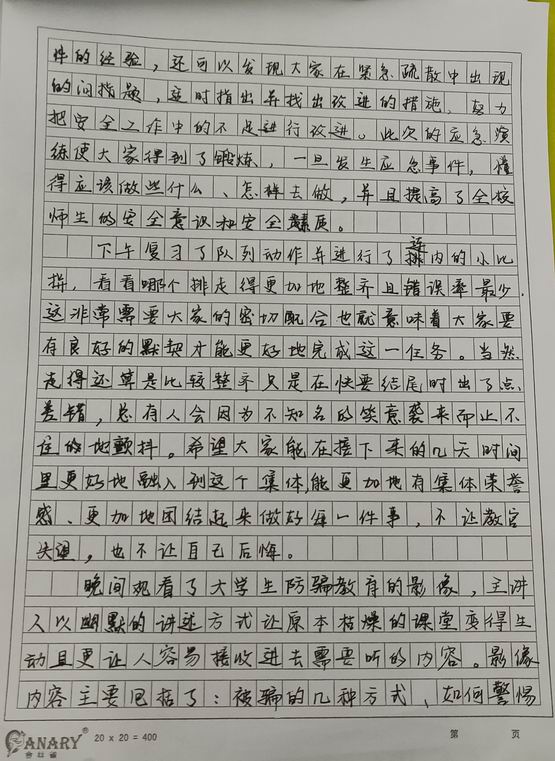 件的经验，还可以发现大家在紧急疏散中出现
的问指题，延时指出并找出改进的措施，努力
把安全工作中的不足进行改进。此次的应急演
练使大家得到了锻炼，一旦发生应急事件，懂
得应该做些什么、怎样去做，并且提高了全校
师生的安全意识和安全素质。
下午复习了队列动作并进行了连内的小比
拼，看看哪个排走得更加地整齐且错误率最少.
这非常需要大家的密切配合也就意味着大家要
有良好的默契才能更好地完成这一任务。当然
走得还算是比较整齐只是在快要结尾时出了点
差错，总有人会因为不知名的笑意袭来而止不
住的地颤抖。希望大家能在接下来的几天时间
里更好地融入到这个集体，能更加地有集体荣誉
感、更加地团结起来做好每一件事，不让教官
失望，也不让自己后悔。
晚间观看了大学生防骗教育的影像，主讲
人以幽默的讲述方式让原本枯燥的课堂变得生
动且更让人容易接收进去需要听的内容。影像
内容主要包括了：被骗的几种方式、如何警惕
CANARY® 20 x 20 = 400 第 页